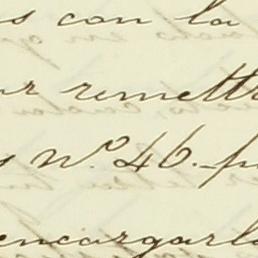 s con la
remettr
Nº 46. p
encargarl